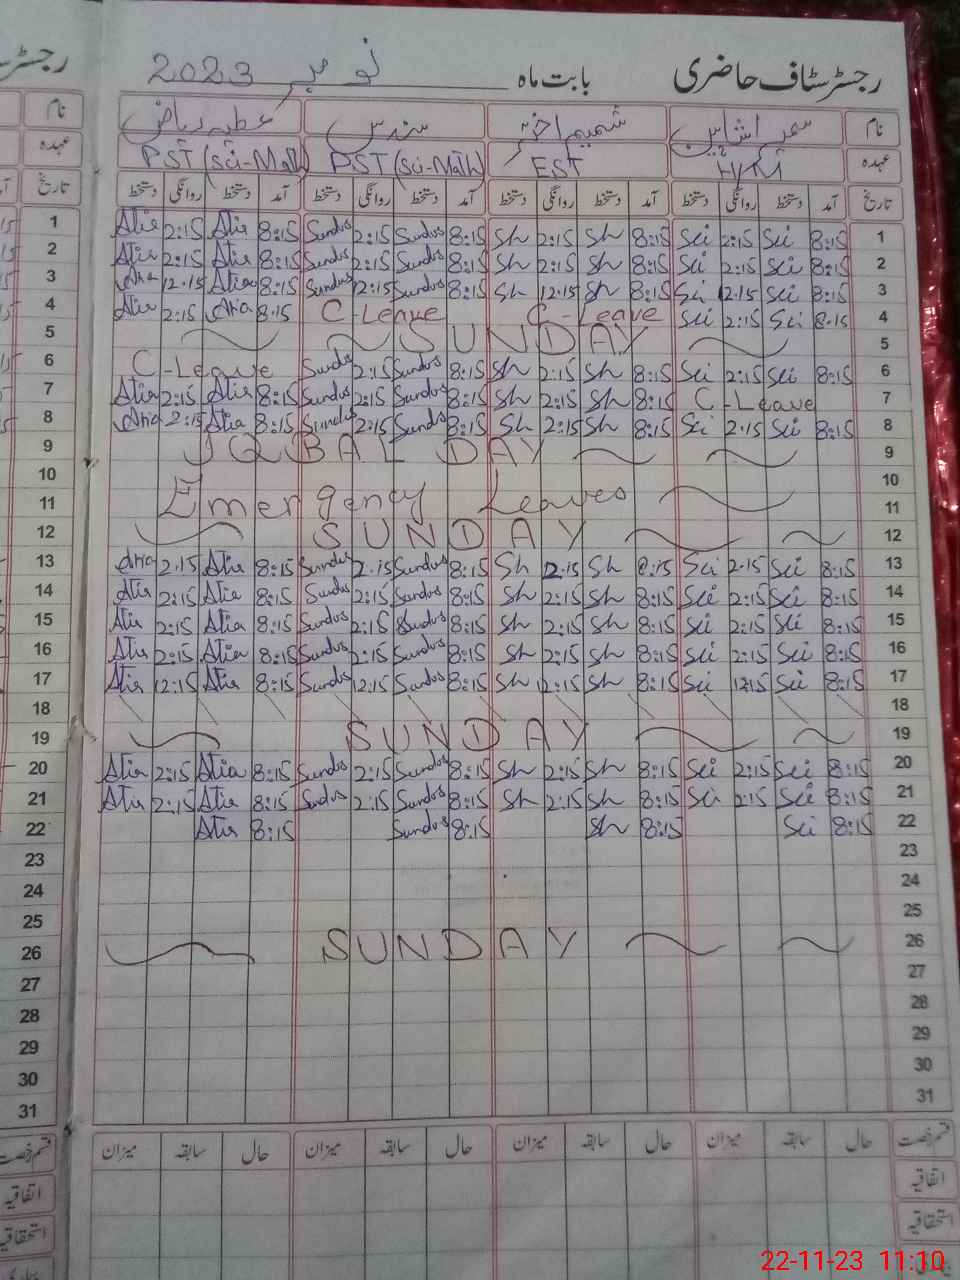 رجسٹر سٹاف حاضری بابت ماہ نومبر 2023
نام شمیم اختر سندس عطیہ ریاض نام
عہدہ EST PST (Sci-Math) PST (Sci-Math) عہدہ
تاریخ آمد دستخط روانگی دستخط آمد دستخط روانگی دستخط آمد دستخط روانگی دستخط آمد دستخط روانگی دستخط تاریخ
1 Atia 2:15 Atia 8:15 Sundus 2:15 Sundus 8:15 Sh 2:15 Sh 8:15 Sei 2:15 Sei 8:15 1
2 Atia 2:15 Atia 8:15 Sundus 2:15 Sundus 8:15 Sh 2:15 Sh 8:15 Sei 2:15 Sei 8:15 2
3 Atia 12.15 Atia 8:15 Sundus 12:15 Sundus 8:15 Sh 12.15 Sh 8:15 Sei 12.15 Sei 8:15 3
4 Atia 2:15 Atia 8.15 C-Leave C-Leave Sei 2:15 Sei 8.15 4
5 SUNDAY 5
6 C-Leave Sundus 2:15 Sundus 8:15 Sh 2:15 Sh 8:15 Sei 2:15 Sei 8:15 6
7 Atia 2:15 Atia 8:15 Sundus 2:15 Sundus 8:15 Sh 2:15 Sh 8:15 C-Leave 7
8 Atia 2:15 Atia 8:15 Sundus 2:15 Sundus 8:15 Sh 2:15 Sh 8:15 Sei 2.15 Sei 8:15 8
9 IQBAL DAY 9
10 10
11 Emergency Leaves 11
12 SUNDAY 12
13 Atia 2.15 Atia 8:15 Sundus 2.15 Sundus 8:15 Sh 2.15 Sh 8:15 Sei 2.15 Sei 8:15 13
14 Atia 2:15 Atia 8:15 Sundus 2:15 Sundus 8:15 Sh 2:15 Sh 8:15 Sei 2:15 Sei 8:15 14
15 Atia 2:15 Atia 8:15 Sundus 2:15 Sundus 8:15 Sh 2:15 Sh 8:15 Sei 2:15 Sei 8:15 15
16 Atia 2:15 Atia 8:15 Sundus 2:15 Sundus 8:15 Sh 2:15 Sh 8:15 Sei 2:15 Sei 8:15 16
17 Atia 12:15 Atia 8:15 Sundus 12:15 Sundus 8:15 Sh 12:15 Sh 8:15 Sei 12:15 Sei 8:15 17
18 18
19 SUNDAY 19
20 Atia 2:15 Atia 8:15 Sundus 2:15 Sundus 8:15 Sh 2:15 Sh 8:15 Sei 2:15 Sei 8:15 20
21 Atia 2:15 Atia 8:15 Sundus 2:15 Sundus 8:15 Sh 2:15 Sh 8:15 Sei 2:15 Sei 8:15 21
22 Atia 8:15 Sundus 8:15 Sh 8:15 Sei 8:15 22
23 23
24 24
25 25
26 SUNDAY 26
27 27
28 28
29 29
30 30
31 31
قسم رخصت حال سابقہ میزان حال سابقہ میزان حال سابقہ میزان حال سابقہ میزان قسم رخصت
اتفاقیہ اتفاقیہ
استحقاقیہ استحقاقیہ
22-11-23 11:10